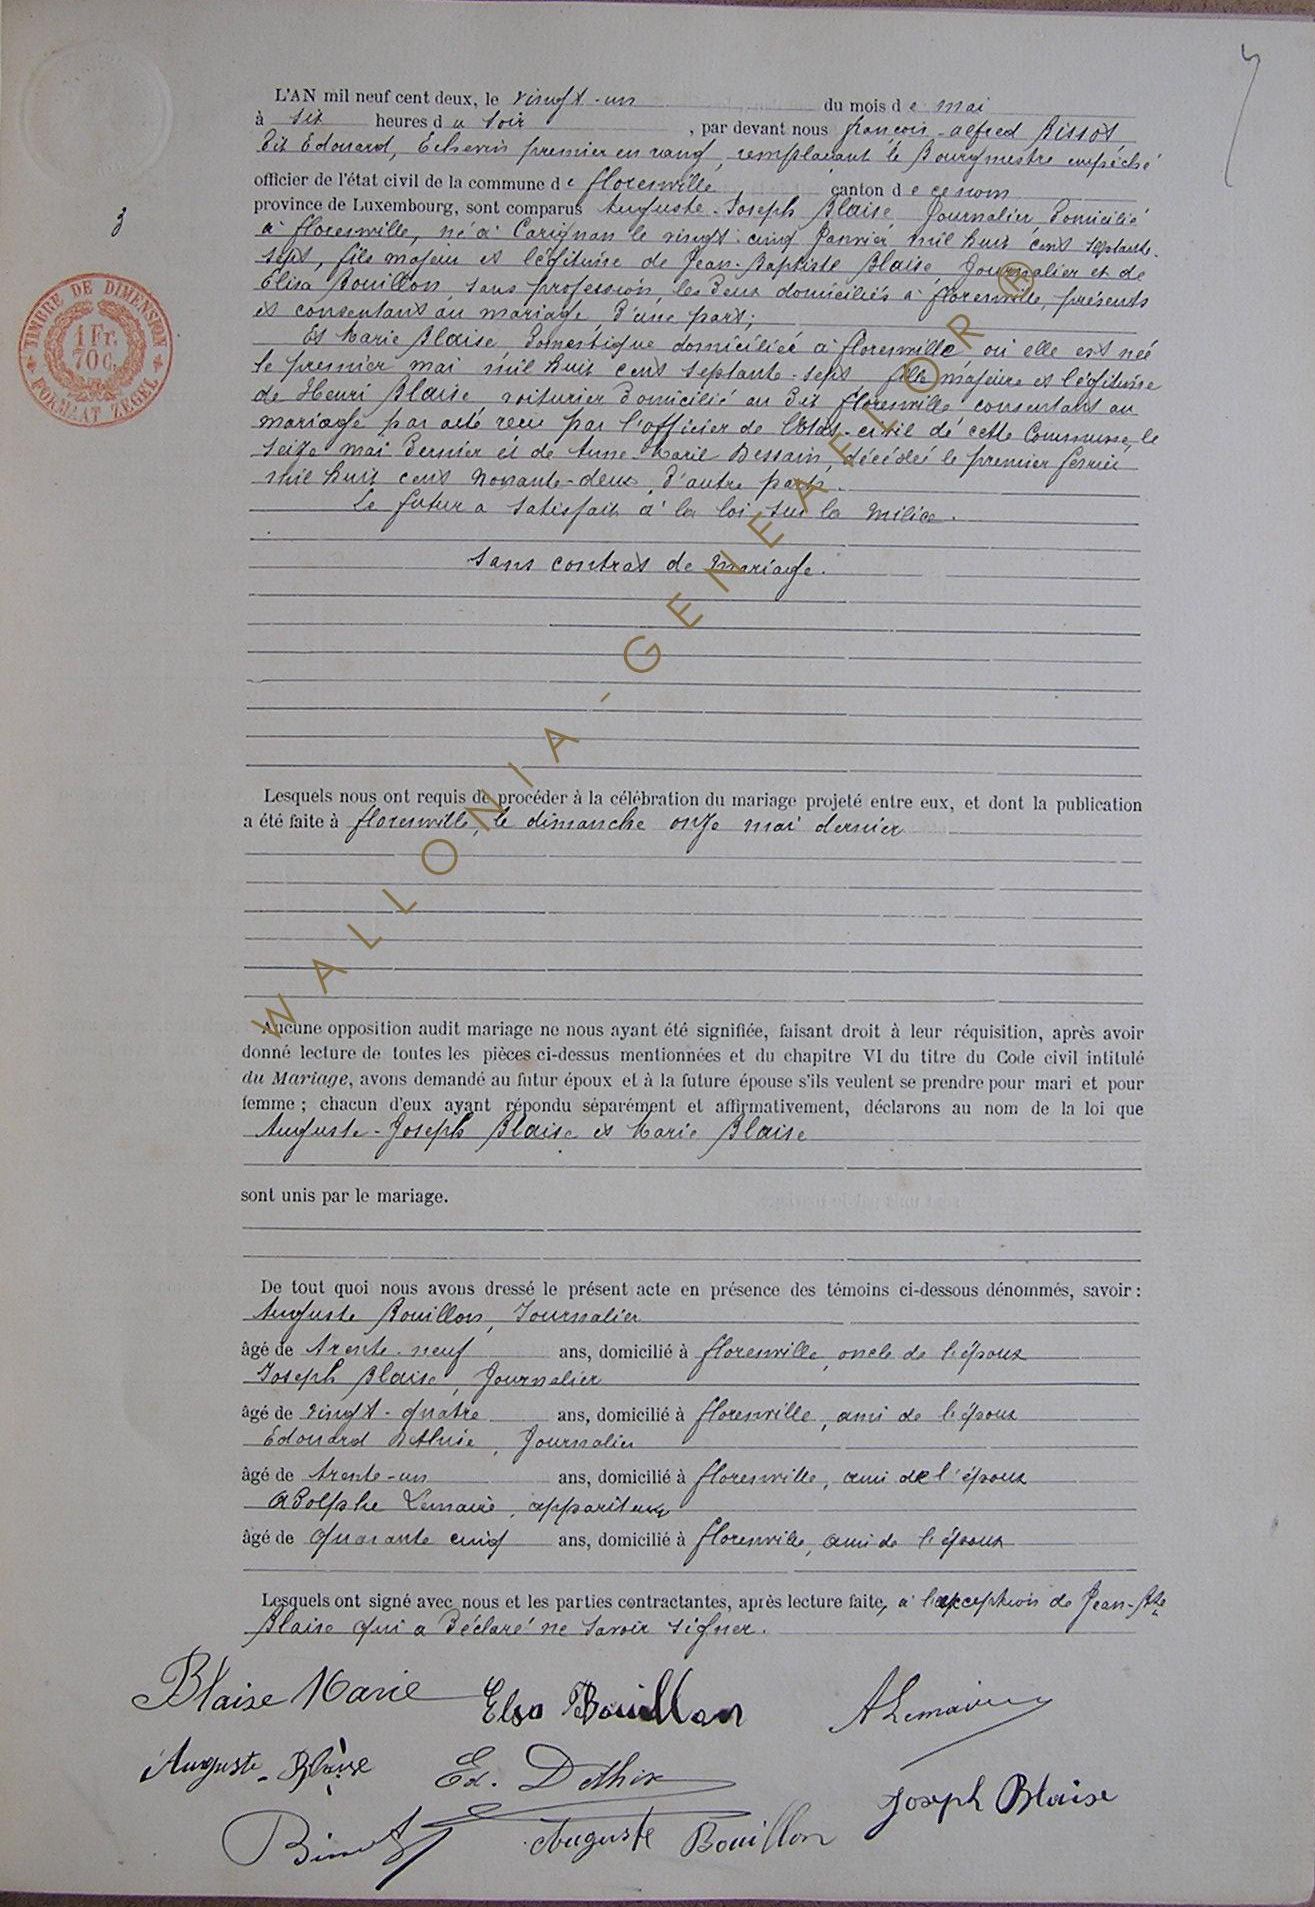 3
TIMBRE DE DIMENSION
1 Fr.
70 C.
FORMAAT ZEGEL
L'AN mil neuf cent deux, le vingt-un du mois de mai
à six heures du soir, par devant nous françois-alfred
dit Edouard, Echevin premier en rang, remplaçant le Bourgmestre empéché
officier de l'état civil de la commune de florenville canton de ce nom
province de Luxembourg, sont comparus Auguste-Joseph Blaise Journalier, domicilié
à florenville, né à Carignan le vingt-cinq Janvier mil huit cent septante-
sept, fils majeur et légitime de Jean-Baptiste Blaise, Journalier et de
Elisa Bouillon, sans profession, les deux domiciliés à florenville, présents
et consentant au mariage, d'une part;
Et Marie Blaise domestique domiciliée à florenville où elle est née
le premier mai mil huit cent septante-sept fille majeure et légitime
de Henri Blaise voiturier domicilié au dit florenville consentant au
mariage par acte reçu par l'officier de l'état-civil de cette Commune, le
seize mai dernier et de Anne-Marie Dessain, décédée le premier fevrier
mil huit cent nonante-deux, d'autre part.
Le futur a satisfait à la loi sur la milice.
Sans contrat de mariage.
Lesquels nous ont requis de procéder à la célébration du mariage projeté entre eux, et dont la publication
a été faite à florenville, le dimanche onze mai dernier
Aucune opposition audit mariage ne nous ayant été signifiée, faisant droit à leur réquisition, après avoir
donné lecture de toutes les pièces ci-dessus mentionnées et du chapitre VI du titre du Code civil intitulé
du Mariage, avons demandé au futur époux et à la future épouse s'ils veulent se prendre pour mari et pour
femme ; chacun d'eux ayant répondu séparément et affirmativement, déclarons au nom de la loi que
Auguste-Joseph Blaise et Marie Blaise
sont unis par le mariage.
De tout quoi nous avons dressé le présent acte en présence des témoins ci-dessous dénommés, savoir :
Auguste Bouillon, Journalier
âgé de trente-neuf ans, domicilié à florenville, oncle de l'époux
Joseph Blaise, Journalier
âgé de vingt-quatre ans, domicilié à florenville, ami de l'époux
Edouard, Journalier
âgé de trente-un ans, domicilié à florenville, ami de l'époux
Adolphe Lemaire, appariteur
âgé de quarante cinq ans, domicilié à florenville, ami de l'époux
Lesquels ont signé avec nous et les parties contractantes, après lecture faite, à l'exception de Jean-Bte
Blaise qui a déclaré ne savoir signer.
Blaise Marie Elsa Bouillon A Lemaire
Auguste-Blaise Ed. Dethise Joseph Blaise
Auguste Bouillon
WALLONIA-GENEAFLOR ®